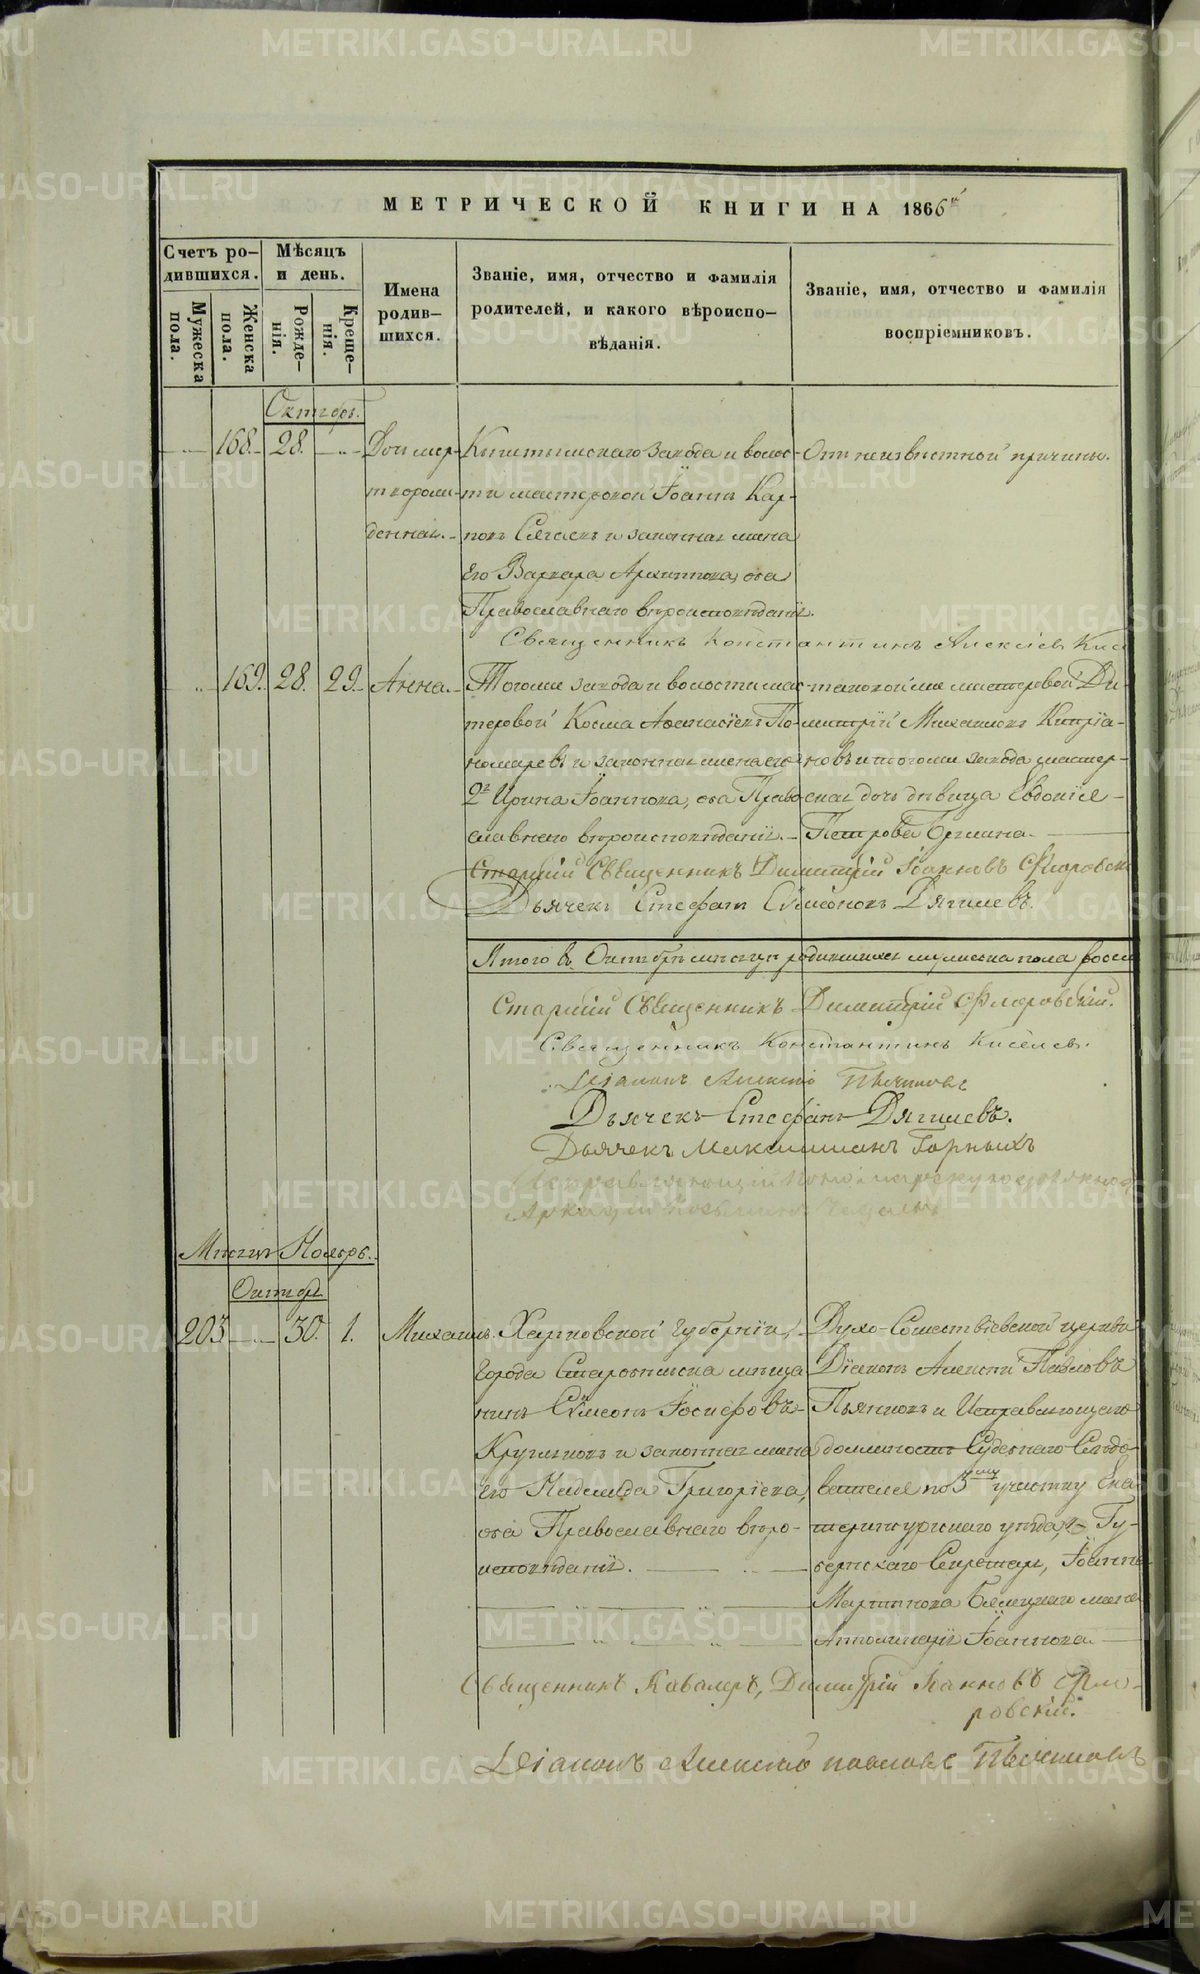 МЕТРИЧЕСКОЙ КНИГИ НА 1866й
Счетъ ро-
дившихся.
Мѣсяцъ
и день.
Мужеска
пола.
Женска
пола.
Рожде-
нія.
Креще-
нія.
Имена
родив-
шихся.
Званіе, имя, отчество и фамилія
родителей, и какого вѣроиспо-
вѣданія.
Званіе, имя, отчество и фамилія
воспріемниковъ.
Октябрь.
168. 28. Дочь мер-
твором-
денная.
Кыштымскаго завода и волос-
ти мастеровой Іоаннъ Кар-
повъ и законная жена
Его Варвара Архиппова, оба
Православнаго вѣроисповѣданія.
Отъ неизвѣстной причины.
Священникъ Константинъ Алексіевъ Кис
169. 28. 29. Анна.
Тогоже завода и волости мас-
теровой Косма Аѳанасіевъ По-
номаревъ и законная жена его
2я Ирина Іоаннова, оба Право-
славнаго вѣроисповѣданія.
таковой же мастеровой Ди-
митрій Михаиловъ Кипріа-
новъ и тогоже завода мастер-
ская дочь дѣвица Евдокія
Петрова
Старшій Священникъ Димитрій Іоанновъ Флоровскі
Дьячекъ Стефанъ Сѵмеоновъ Дягилевъ.
Итого въ Октябрѣ мѣсяцѣ родившихся мужеска пола
Старшій Священникъ Димитрій Флоровскій.
Священникъ Константинъ Киселевъ.
Діаконъ Алексій Пьянковъ
Дьячекъ Стефанъ Дягилевъ.
Дьячекъ Максимиліанъ Горныхъ
Мѣсяцъ Ноябрь.
Октябр.
203 30. 1. Михаилъ.
Харьковской Губерніи,
Города Старобѣльска мѣща-
нинъ Сѵмеонъ Іосифовъ
Кругликовъ и законная жена
его Надежда Григоріева,
оба Православнаго вѣро-
исповѣданія.
Духо-Сошествіевской церкви
Діаконъ Алексій Павловъ
Пьянковъ и Исправляющаго
должность Судебнаго Слѣдо-
вателя по 3му участку Ека-
теринбургскаго уѣзда, Гу-
бернскаго Секретаря, Іоанна
Мартинова жена
Іоаннова
Священникъ Кавалеръ, Димитрій Іоанновъ Фло-
ровскій.
Діаконъ Алексій Павловъ Пьянковъ
METRIKI.GASO-URAL.RU